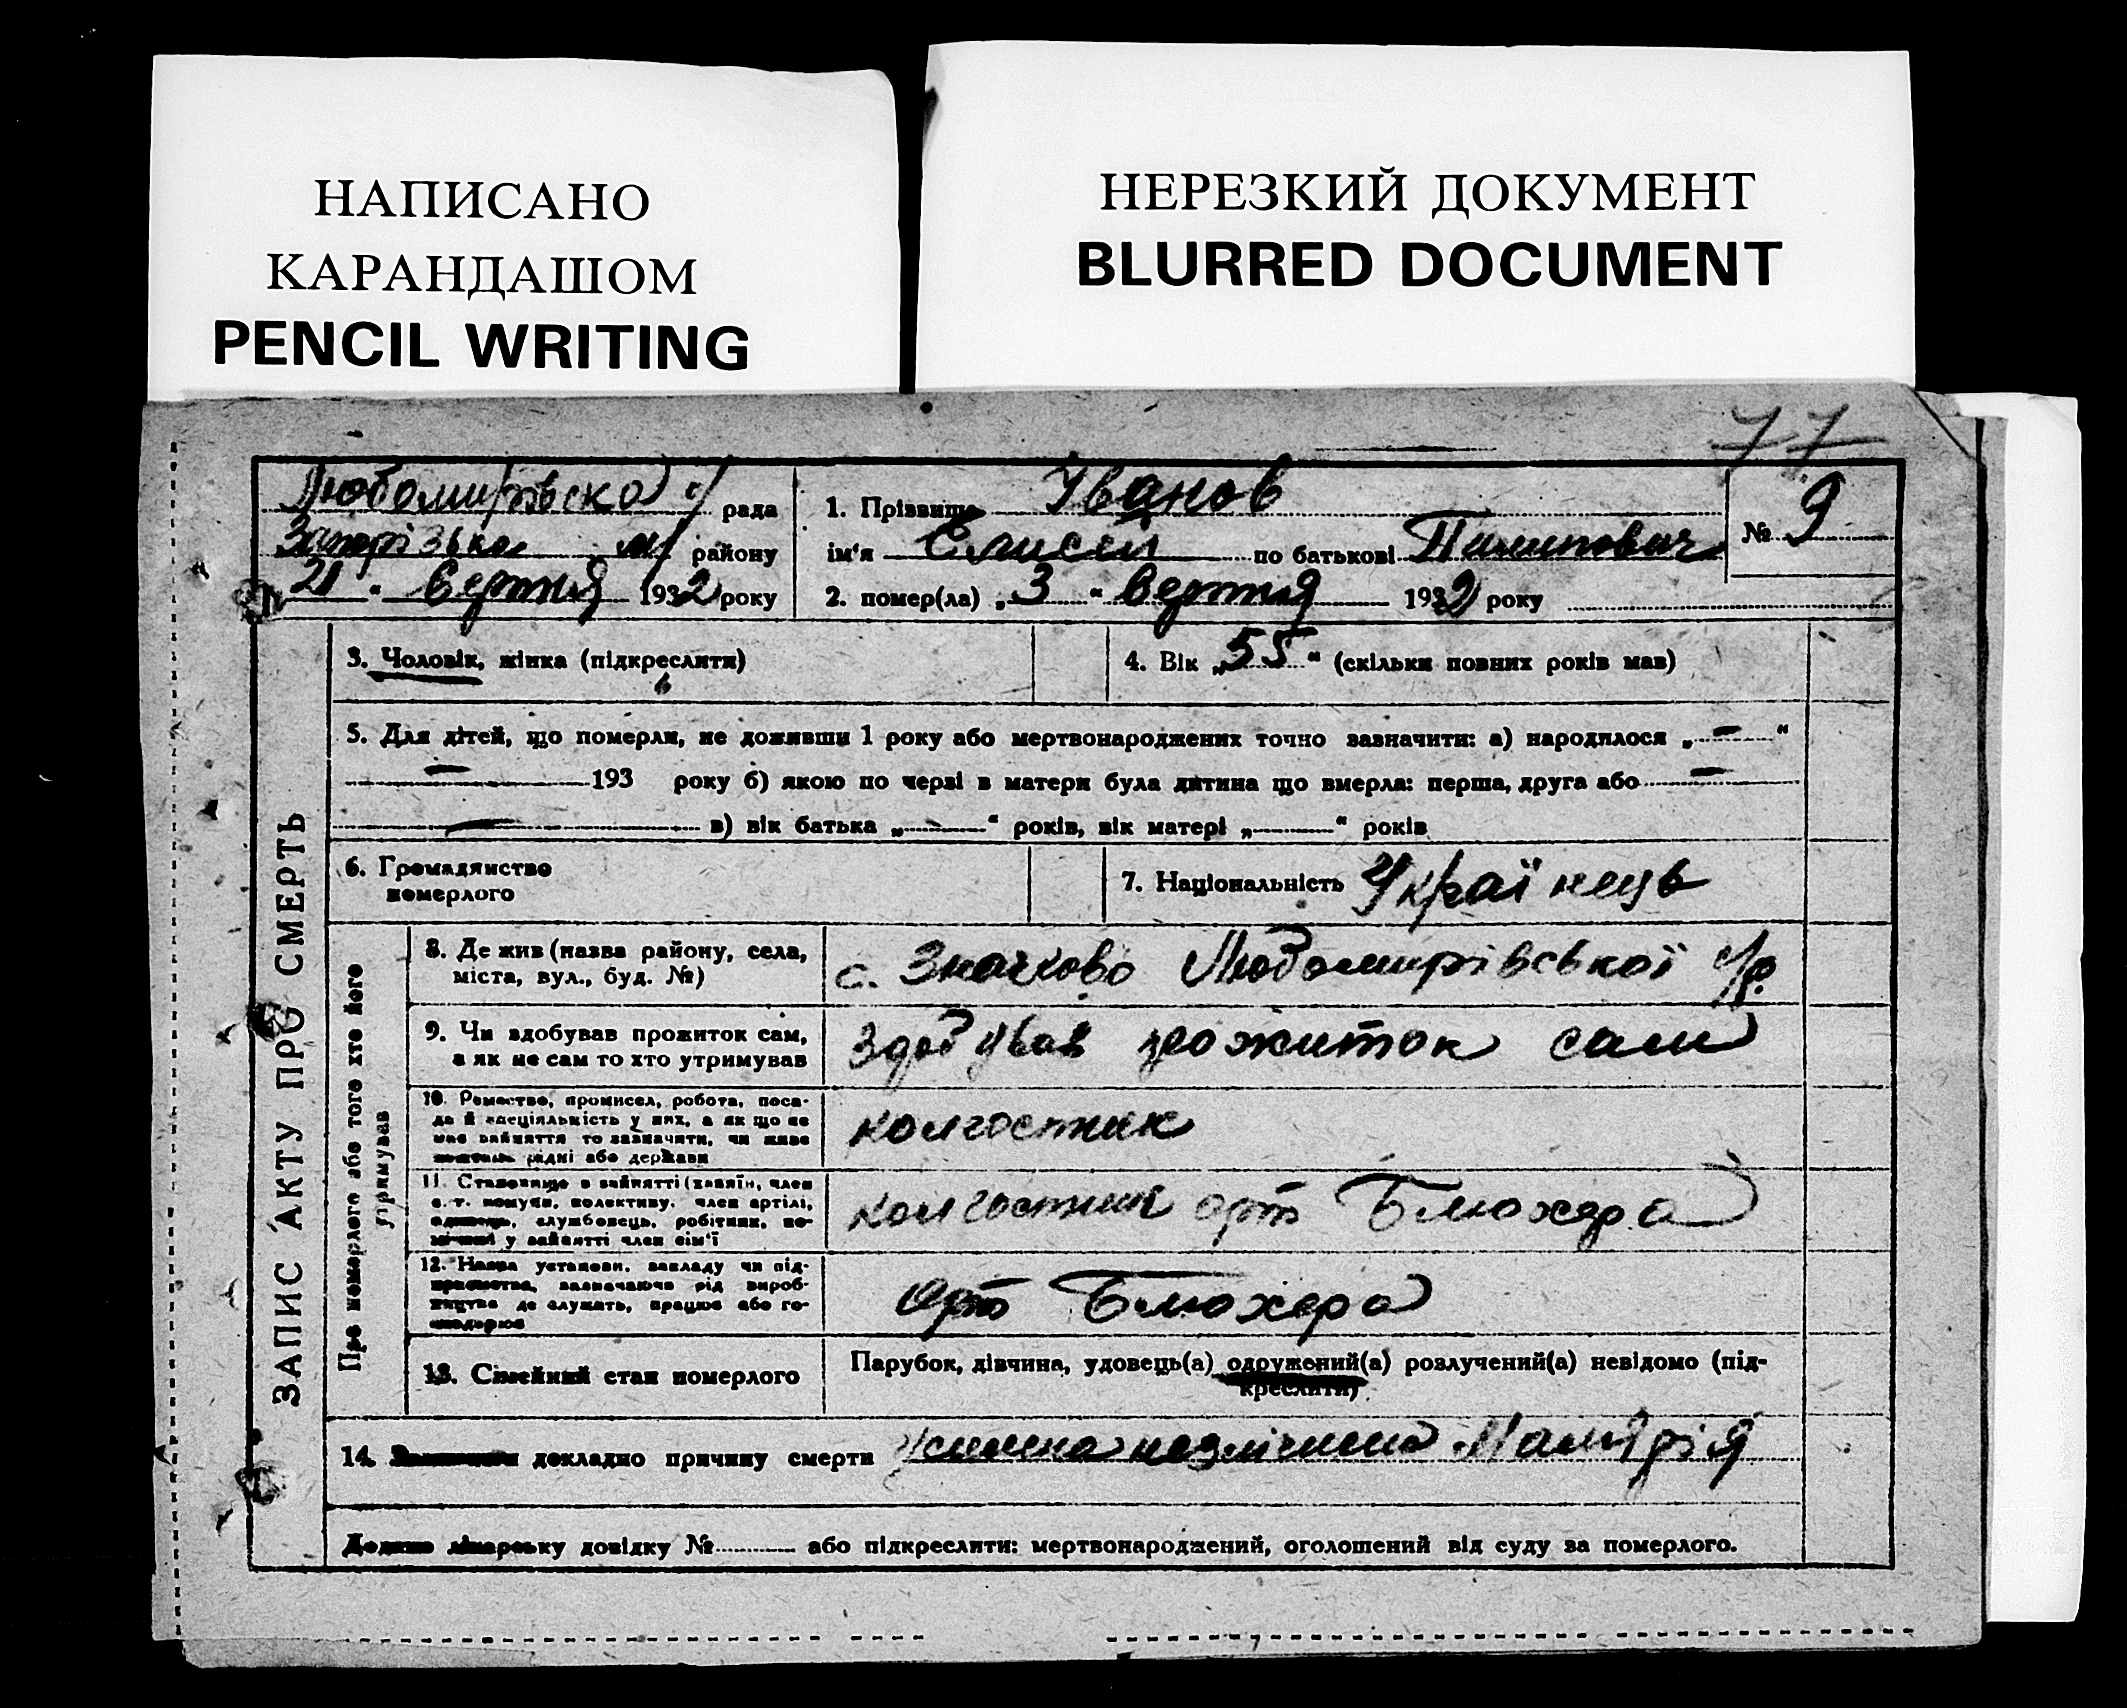 НАПИСАНО
КАРАНДАШОМ
PENCIL WRITING
НЕРЕЗКИЙ ДОКУМЕНТ
BLURRED DOCUMENT
77
Любомирівська с/ рада
Запорізько м/ району
21 " серпня 1932 року
1. Прізвище Іванов
ім'я Єлисей по батькові Пилипович
№ 9
2. помер(ла) „ 3 " серпня 1932 року
ЗАПИС АКТУ ПРО СМЕРТЬ
3. Чоловік, жінка (підкреслити)
4. Вік „ 55 " (скільки повних років мав)
5. Для дітей, що померли, не доживши 1 року або мертвонароджених точно зазначити: а) народилося „ – "
– 193 року б) якою по черзі в матери була дитина що вмерла: перша, друга або –
– в) вік батька „ – " років, вік матері „ " років
6. Громадянство
померлого
7. Національність Українець
Про померлого або того хто його
утримував
8. Де жив (назва району, села,
міста, вул., буд. №)
с. Значково Любомирівської с/р.
9. Чи здобував прожиток сам,
а як не сам то хто утримував
Здобував прожиток сам
10. Ремество, промисел, робота, поса-
да й спеціяльність у них, а як що не
має зайняття то зазначити, чи живе
рідні або держави
колгоспник
11. Становище в зайнятті (хазяїн, член
с.-г. комуни, колективу, член артілі,
службовець, робітник, по-
у зайнятті член сім'ї
колгоспник арт Блюхера
12. Назва установи, закладу чи під-
зазначаючи рід вироб-
ництва де служить, працює або го-
арт Блюхера
13. Сімейний стан померлого
Парубок, дівчина, удовець(а) одружений(а) розлучений(а) невідомо (під-
креслити)
14. докладно причину смерти Малярія
Додано лікарську довідку № або підкреслити: мертвонароджений, оголошений від суду за померлого.